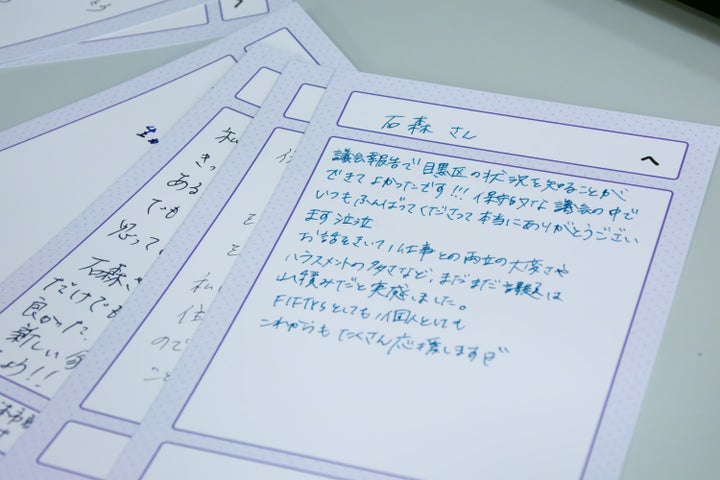 石森 さん
へ
議会報告で目黒区の状況を知ることが
できてよかったです!!! 保守的な議会の中で
いつもふんばってくださって本当にありがとうござい
ます泣泣
お話をきいて、仕事との両立の大変さや
ハラスメントの多さなど、まだまだ課題は
山積みだと実感しました。
FIFTYSとしても、個人としても
これからもたくさん応援します
私
きっ
ある
でも
思って
石森さ
だけでも
良かった
新しい
しょう!!
住
そ
そ
私
住
ので
こと